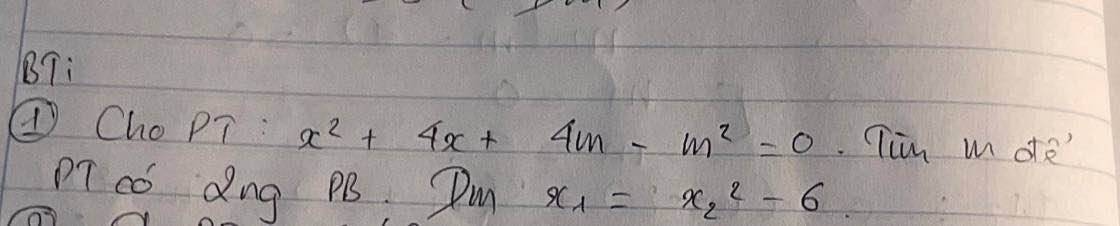 BT:
① Cho PT: x² + 4x + 4m - m² = 0. Tìm m để
PT có 2ng PB. Đm x₁ = x₂² - 6.